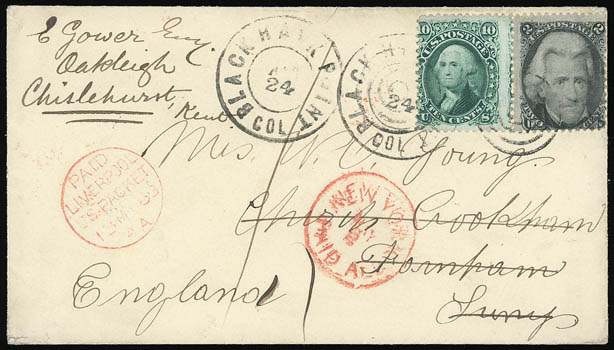 E Gower Esq.
Oakleigh
Chislehurst,
Kent
BLACK HAWK POINT
24
COL.
BLACK HA
24
COL
10 10
U.S. POSTAGE
TEN CENTS
U S
2 2
U.S. POSTAGE
PAID
LIVERPOOL
U.S. PACKET
NEW YORK
PAID ALL
Mrs. W. C. Young.
Church Crookham
Farnham
England